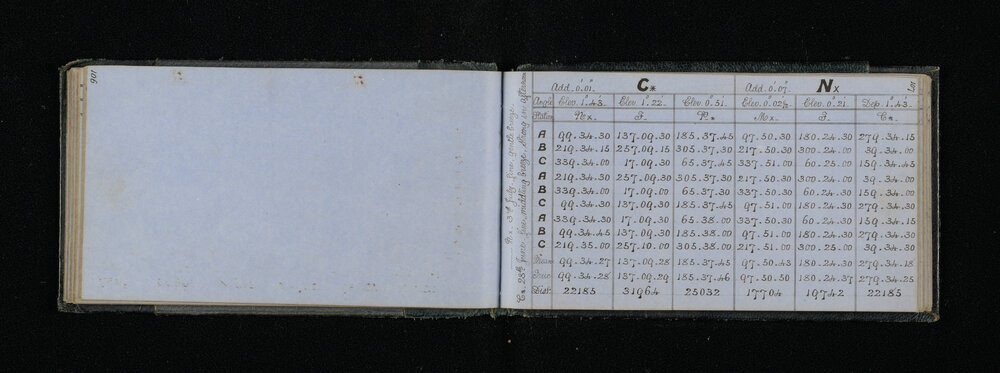 106
107
Cx 28th June fine, middling breeze, strong in afternoon
Nx 3rd July fine, gentle breeze.
Add. 0.01. C* Add. 0.07. Nx
Angle Elev. 1.43. Elev. 1.22. Elev. 0.51. Elev. 0.02½ Elev. 0.21. Dep. 1.43.
Station Nx. F. Mx. F. Cx.
A 99.34.30 137.09.30 185.37.45 97.50.30 180.24.30 279.34.15
B 219.34.15 257.09.15 305.37.30 217.50.30 300.24.00 39.34.00
C 339.34.00 17.09.30 65.37.45 337.51.00 60.25.00 159.34.45
A 219.34.30 257.09.30 305.37.30 217.50.30 300.24.00 39.34.00
B 339.34.00 17.09.00 65.37.30 337.50.30 60.24.30 159.34.00
C 99.34.30 137.09.30 185.37.45 97.51.00 180.24.30 279.34.30
A 339.34.30 17.09.30 65.38.00 337.50.30 60.24.30 159.34.15
B 99.34.45 137.09.30 185.38.00 97.51.00 180.24.30 279.34.30
C 219.35.00 257.10.00 305.38.00 217.51.00 300.25.00 39.34.30
Mean 99.34.27 137.09.28 185.37.45 97.50.43 180.24.30 279.34.18
99.34.28 137.09.29 185.37.46 97.50.50 180.24.37 279.34.25
Dist. 22185 31964 25032 17704 19742 22185